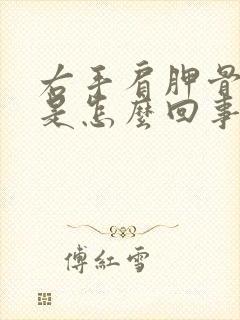 右手肩胛骨
是怎麼回事
傅紅雪